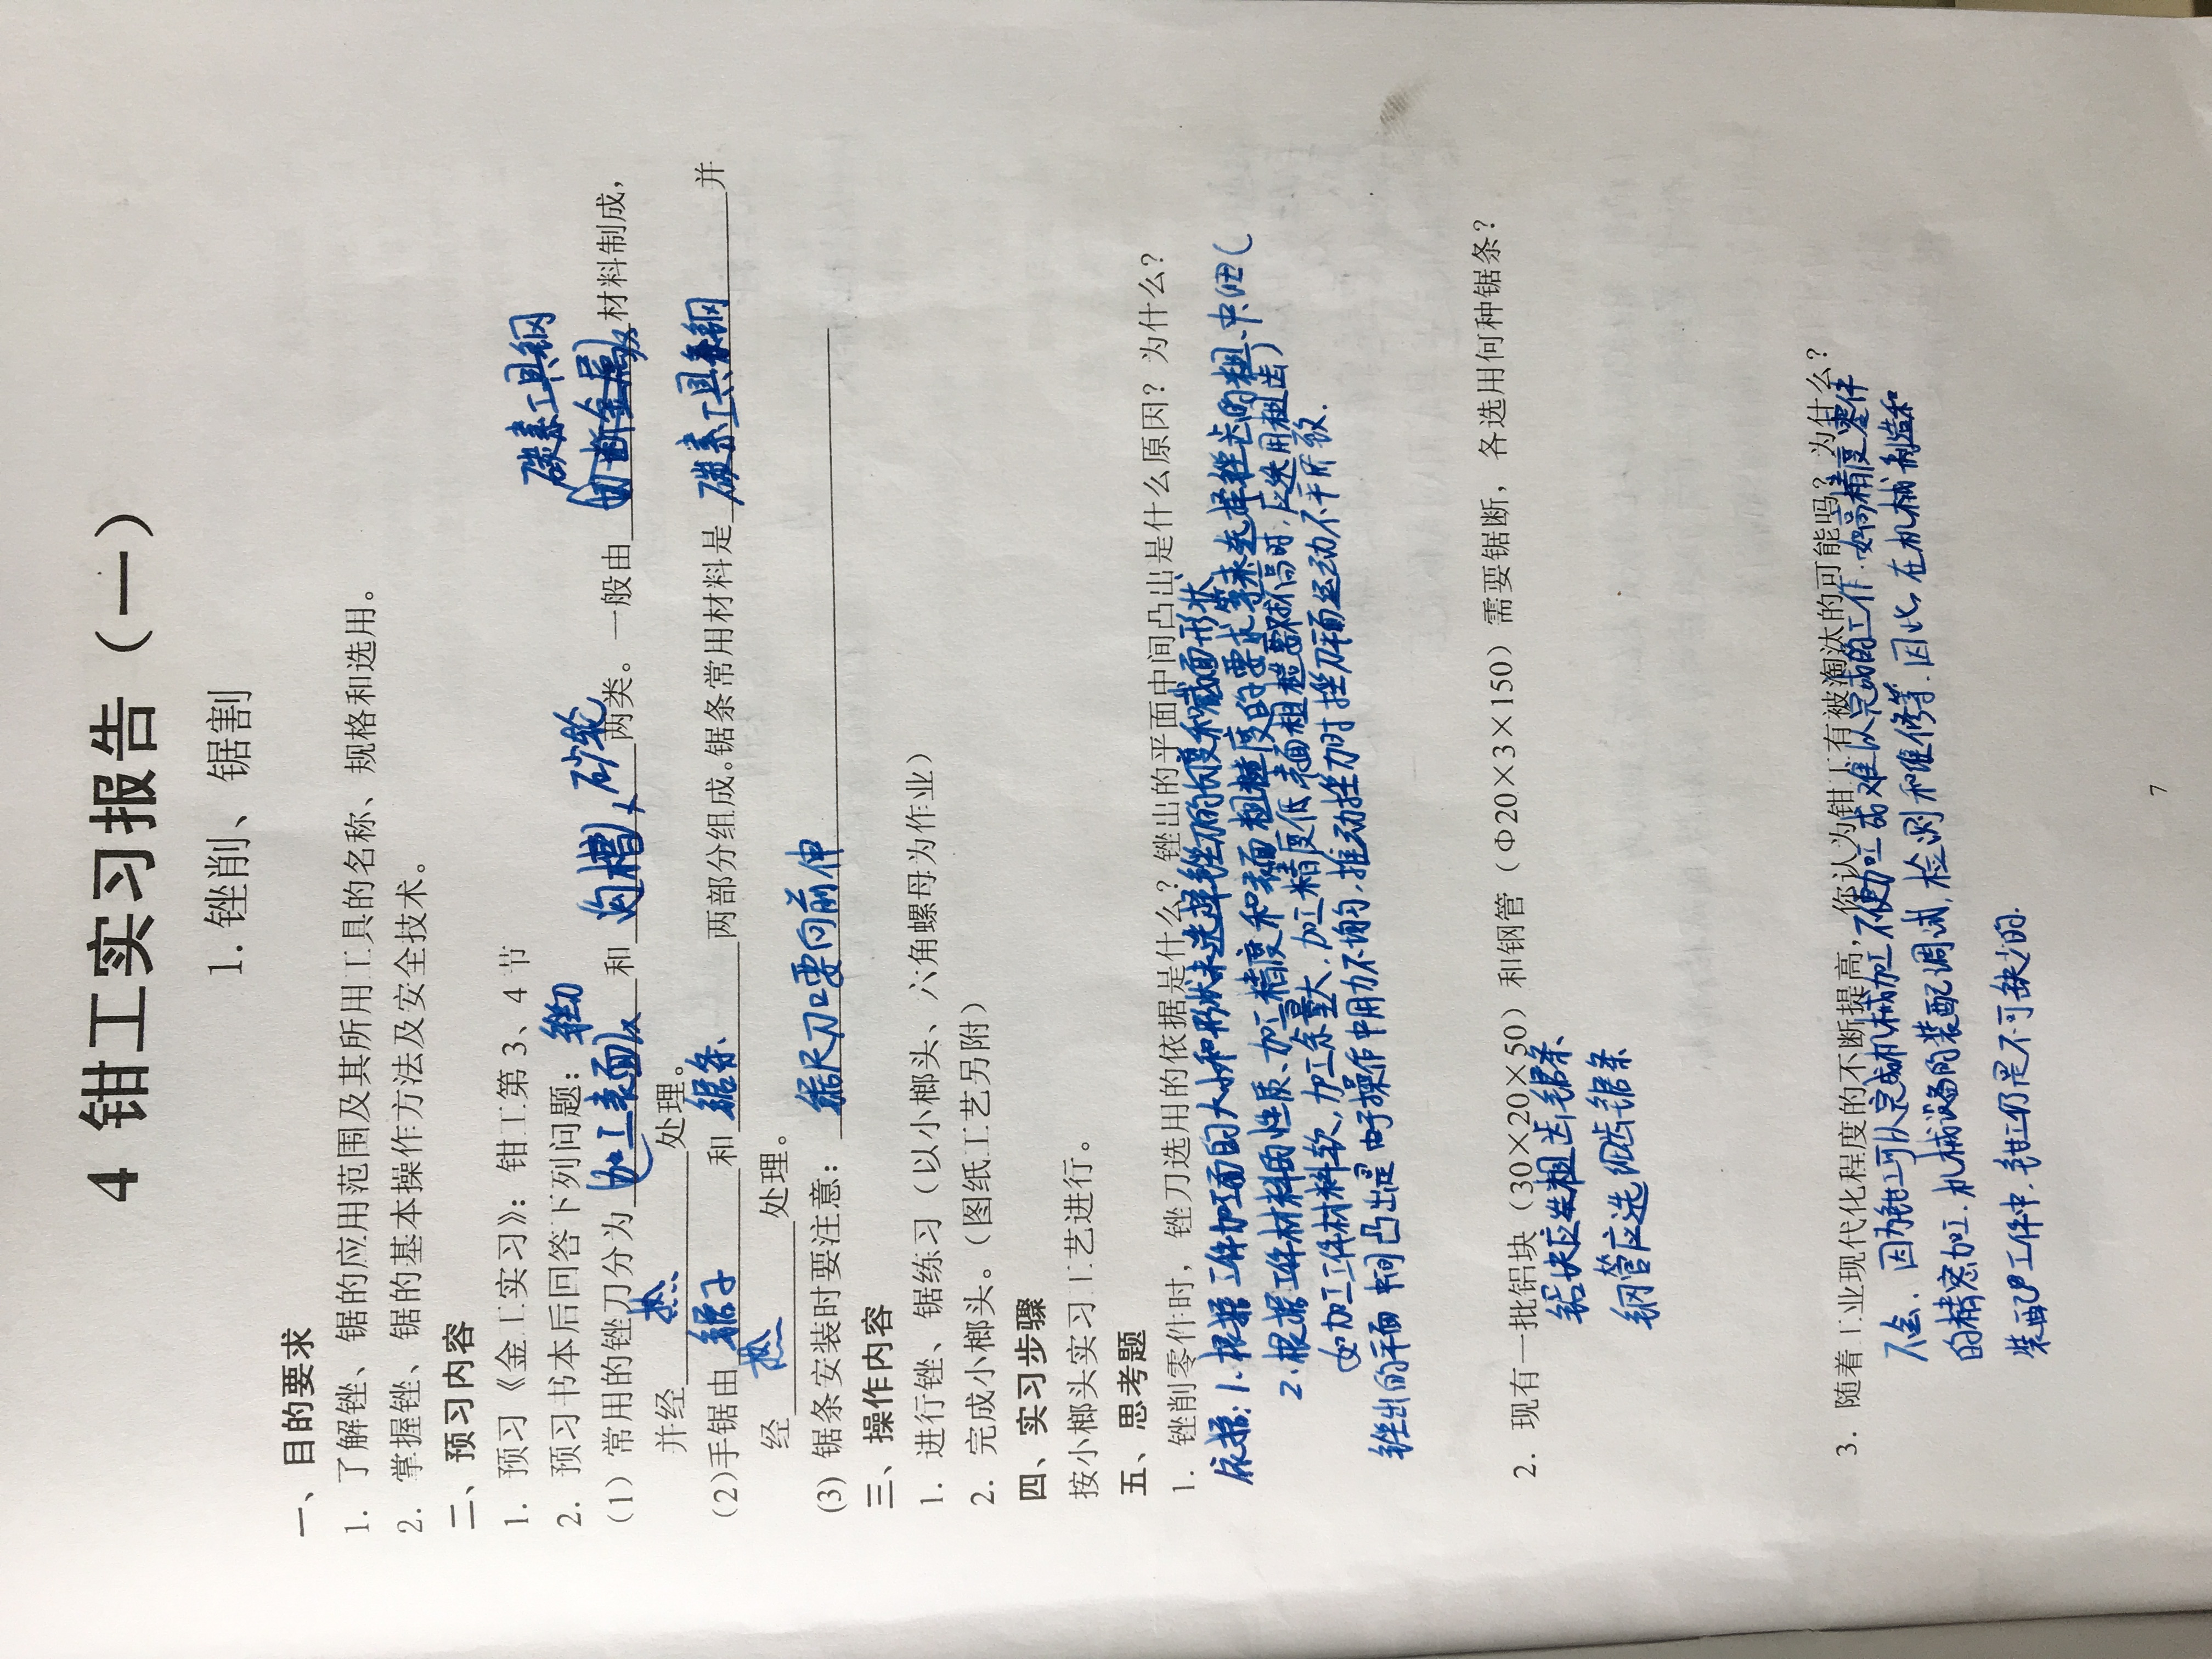 4 钳工实习报告（一）
1. 锉削、锯割
一、目的要求
1. 了解锉、锯的应用范围及其所用工具的名称、规格和选用。
2. 掌握锉、锯的基本操作方法及安全技术。
二、预习内容
1. 预习《金工实习》：钳工第3、4节
2. 预习书本后回答下列问题：
碳素工具钢
（1）常用的锉刀分为 加工表面 和 沟槽 两类。一般由 切断金属 材料制成，
并经 热 处理。
（2）手锯由 锯子 和 锯条 两部分组成。锯条常用材料是 碳素工具钢 并
经 热 处理。
(3) 锯条安装时要注意： 锯尺刀口要向前伸
三、操作内容
1. 进行锉、锯练习（以小榔头、六角螺母为作业）
2. 完成小榔头。（图纸工艺另附）
四、实习步骤
按小榔头实习工艺进行。
五、思考题
1. 锉削零件时，锉刀选用的依据是什么？锉出的平面中间凸出是什么原因？为什么？
依据：1. 根据工件加工面的大小和形状来选择锉刀的长度和截面形状
2. 根据工件材料的性质、加工精度和表面粗糙度的要求等来选择锉齿的粗、中、细（
如加工工件材料软，加工余量大，加工精度低，表面粗糙要求不高时，应选用粗齿）
锉出的平面中间凸出是由于操作中用力不均，推动锉刀时锉刀平面运动不平所致.
2. 现有一批铝块（30×20×50）和钢管（Φ20×3×150）需要锯断，各选用何种锯条？
铝块应选粗齿锯条
钢管应选细齿锯条
3. 随着工业现代化程度的不断提高，你认为钳工有被淘汰的可能吗？为什么？
不会. 因为钳工可以完成机械加工不便加工或难以完成的工作. 如高精度零件
的精密加工. 机械设备的装配调试，检测和维修等. 因此，在机械制造和
装配工作中. 钳工仍是不可缺少的.
7